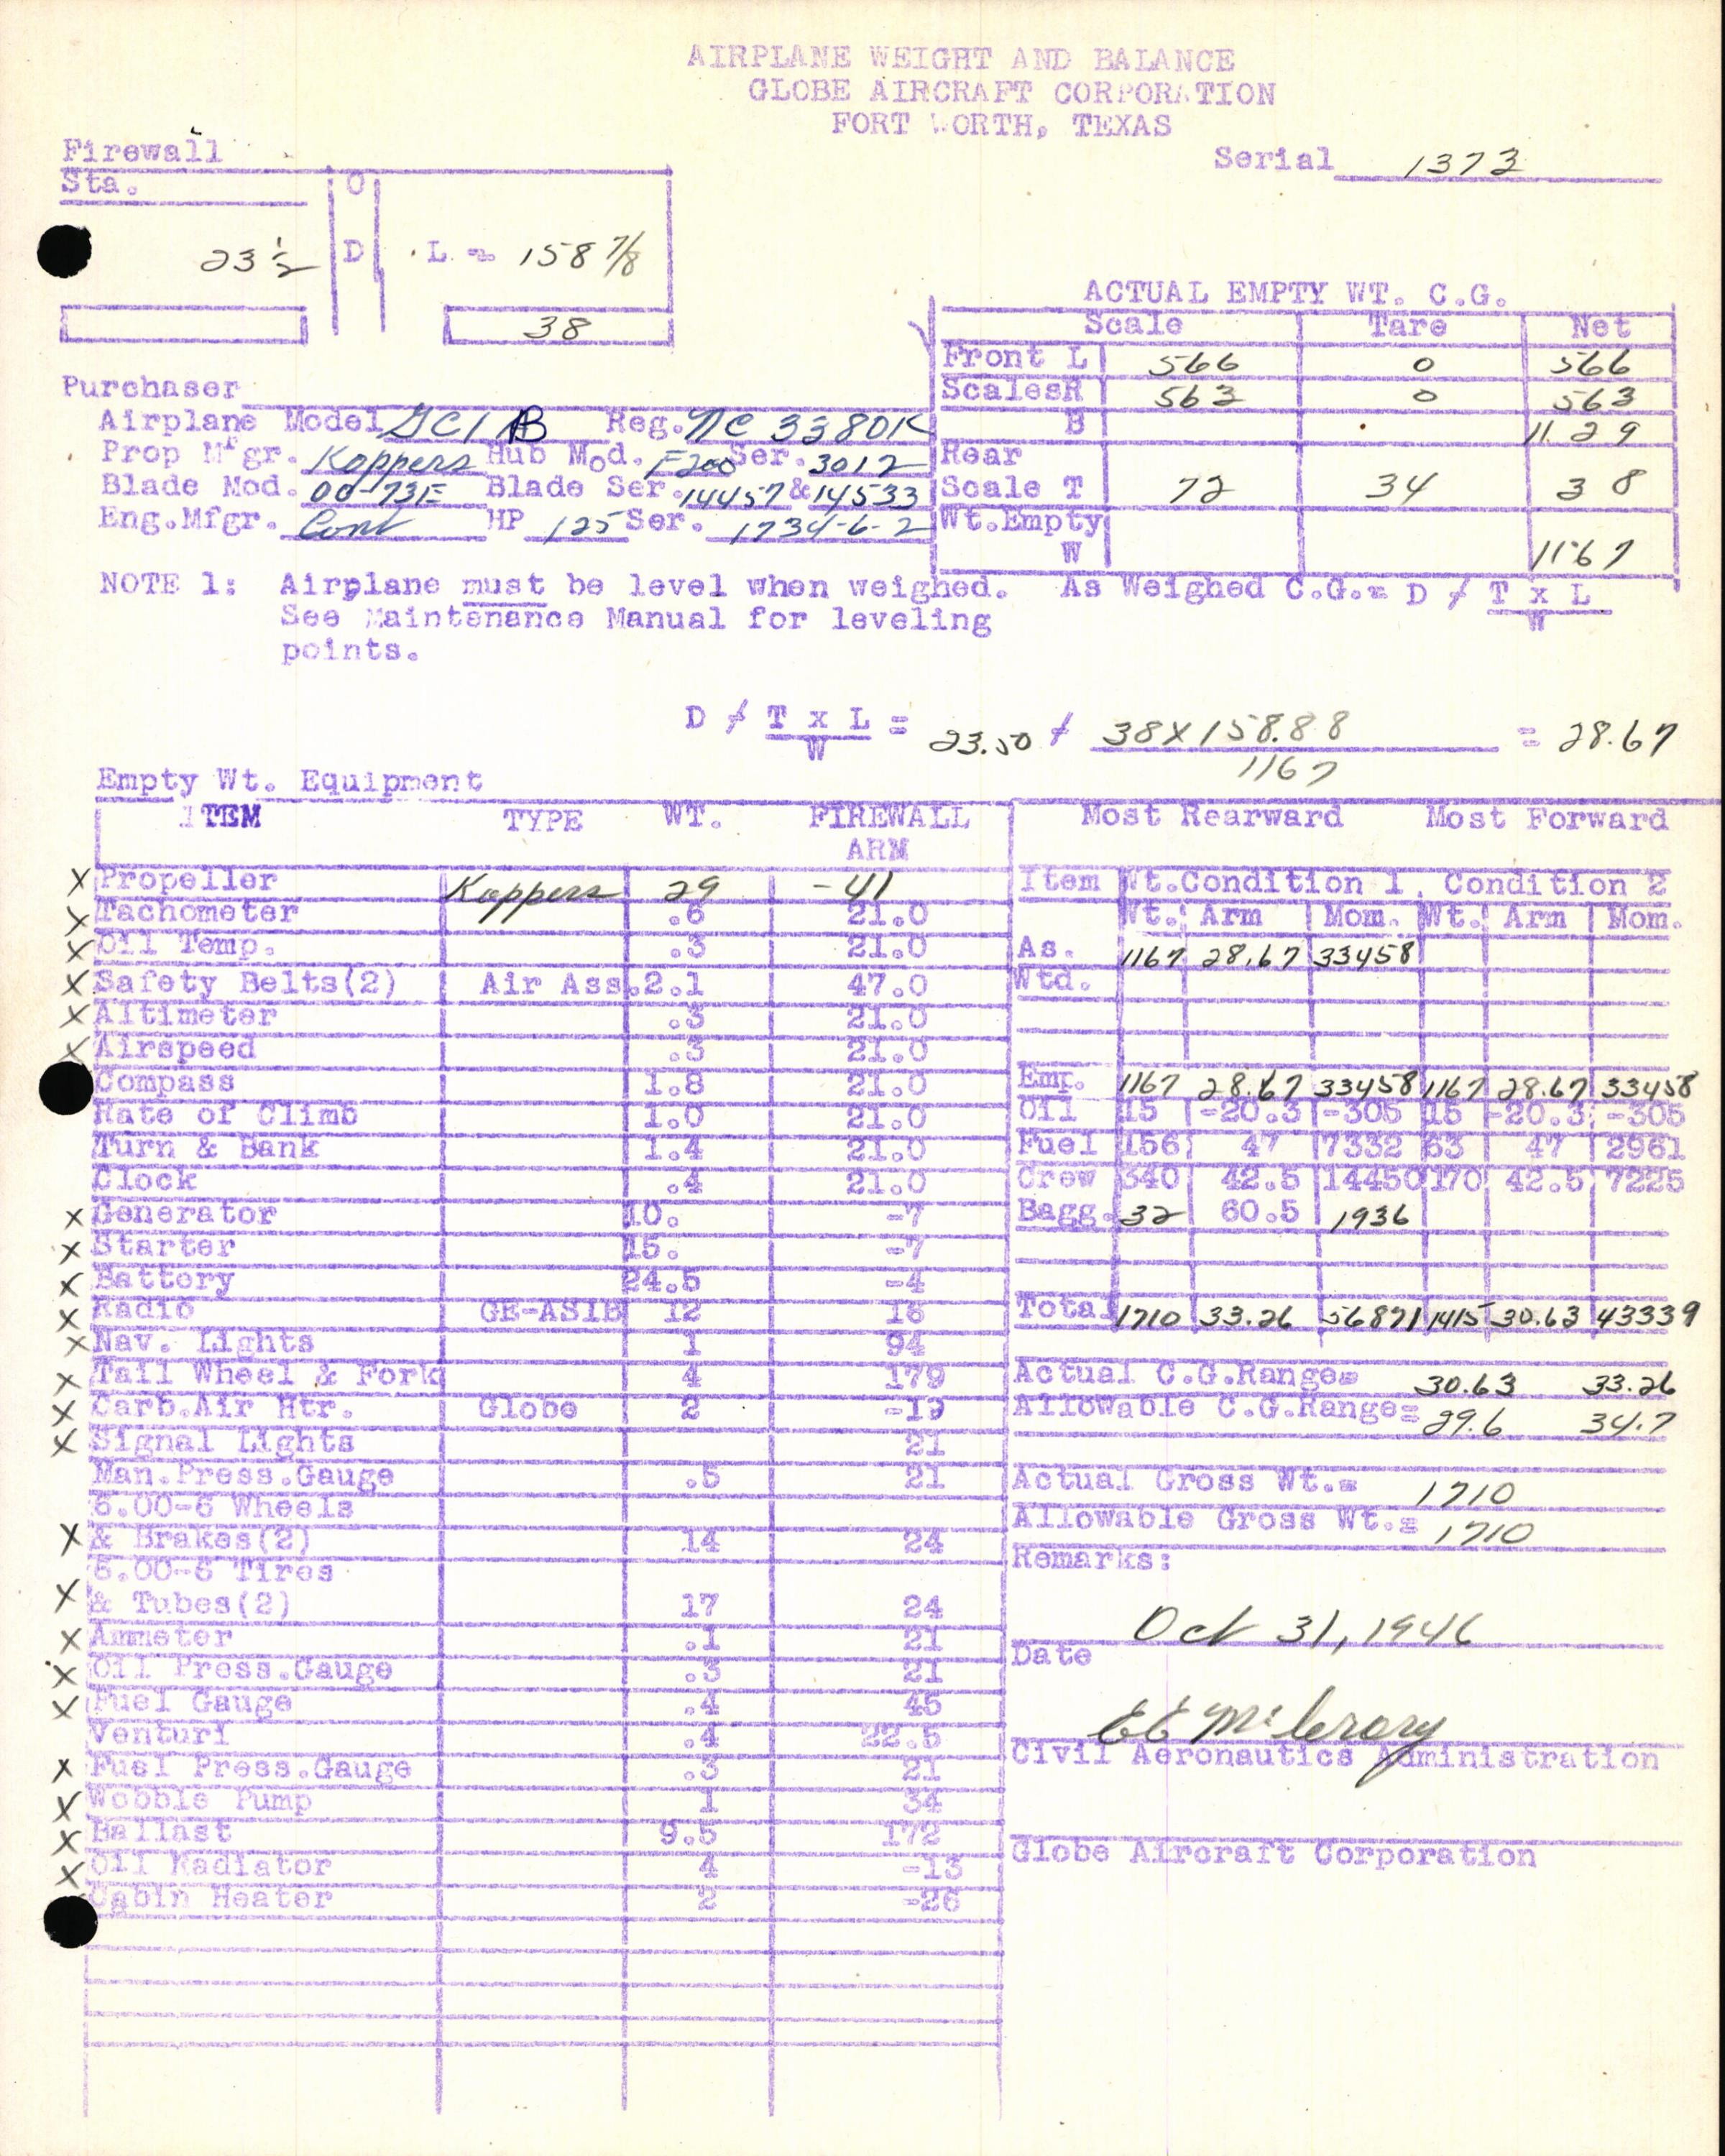 AIRPLANE WEIGHT AND BALANCE
GLOBE AIRCRAFT CORPORATION
FORT WORTH, TEXAS
Serial 1373
Firewall
Sta. O
23 ½ D L = 158 7/8
38
ACTUAL EMPTY WT. C.G.
Scale Tare Net
Front L 566 0 566
Scales R 563 0 563
B 1129
Rear
Scale T 72 34 38
Wt.Empty
W 1167
Purchaser
Airplane Model GC1 B Reg. NC 3380K
Prop Mfgr. Koppers Hub Mod. F200 Ser. 3012
Blade Mod. 00-73E Blade Ser. 14457 & 14533
Eng.Mfgr. Cont HP 125 Ser. 1734-6-2
NOTE 1: Airplane must be level when weighed. As Weighed C.G.= D / T x L
See Maintenance Manual for leveling W
points.
D / T x L = 23.50 / 38 X 158.88 = 28.67
W 1167
Empty Wt. Equipment
ITEM TYPE WT. FIREWALL
ARM
X Propeller Koppers 29 -41
X Tachometer .6 21.0
X Oil Temp. .3 21.0
X Safety Belts(2) Air Ass. 2.1 47.0
X Altimeter .3 21.0
X Airspeed .3 21.0
Compass 1.8 21.0
Rate of Climb 1.0 21.0
Turn & Bank 1.4 21.0
Clock .4 21.0
X Generator 10. -7
X Starter 15. -7
X Battery 24.5 -4
X Radio GE-AS1B 12 16
X Nav. Lights 1 94
X Tail Wheel & Fork 4 179
X Carb.Air Htr. Globe 2 -19
X Signal Lights 21
Man.Press.Gauge .5 21
6.00-6 Wheels
X & Brakes(2) 14 24
6.00-6 Tires
X & Tubes(2) 17 24
X Ammeter .1 21
X Oil Press.Gauge .3 21
X Fuel Gauge .4 45
Venturi .4 22.5
X Fuel Press.Gauge .3 21
X Wobble Pump 1 34
X Ballast 9.5 172
X Oil Radiator 4 -13
Cabin Heater 2 -26
Most Rearward Most Forward
Item Wt.Condition 1. Condition 2
Wt. Arm Mom. Wt. Arm Mom.
As. 1167 28.67 33458
Wtd.
Emp. 1167 28.67 33458 1167 28.67 33458
Oil 15 -20.3 -305 15 -20.3 -305
Fuel 156 47 7332 63 47 2961
Crew 340 42.5 14450 170 42.5 7225
Bagg. 32 60.5 1936
Total 1710 33.26 56871 1415 30.63 43339
Actual C.G.Range= 30.63 33.26
Allowable C.G.Range= 29.6 34.7
Actual Gross Wt.= 1710
Allowable Gross Wt.= 1710
Remarks:
Oct 31, 1946
Date
EE McCrory
Civil Aeronautics Administration
Globe Aircraft Corporation